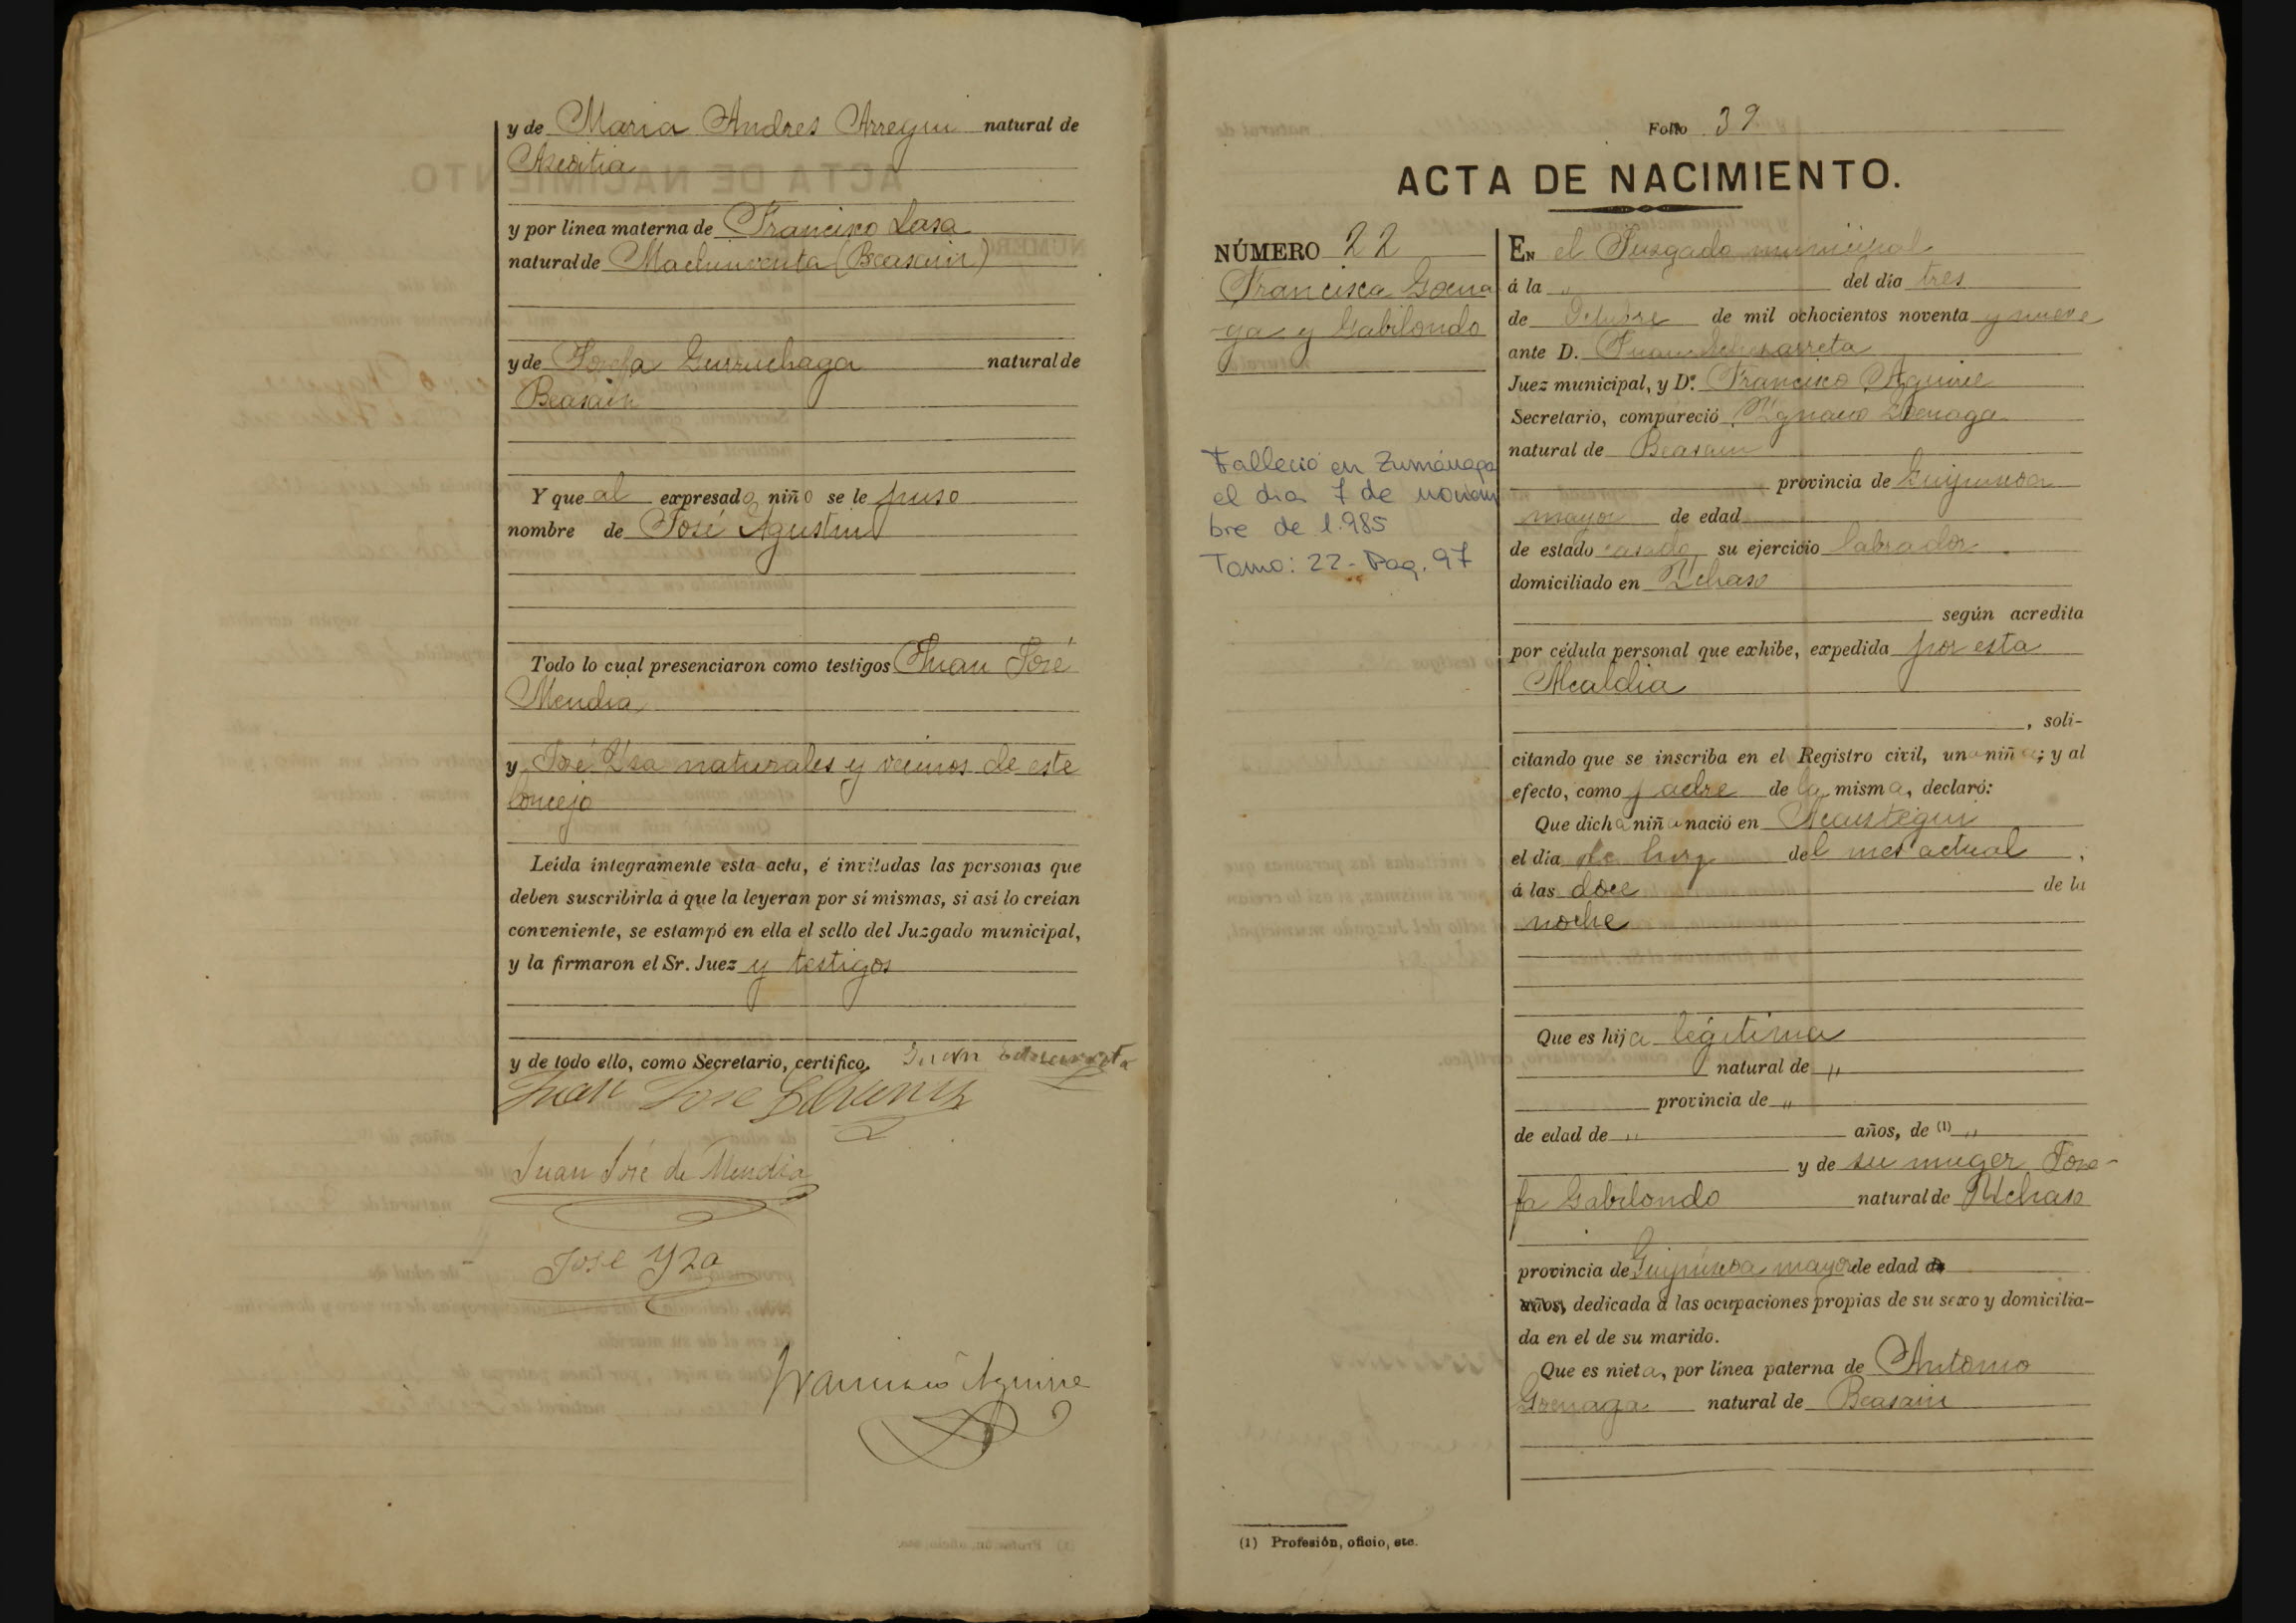 y de Maria Andres Arregui natural de
Azcoitia
y por línea materna de Francisco Lasa
natural de Machinventa (Beasain)
y de Josefa Gurruchaga natural de
Beasain
Y que al expresado niño se le puso
nombre de José Agustin
Todo lo cual presenciaron como testigos Juan José
Mendia
y José Yza naturales y vecinos de este
Concejo
Leída íntegramente esta acta, é invitadas las personas que
deben suscribirla á que la leyeran por sí mismas, si así lo creían
conveniente, se estampó en ella el sello del Juzgado municipal,
y la firmaron el Sr. Juez y testigos
y de todo ello, como Secretario, certifico. Juan
Juan Jose
Juan José de Mendia
Jose Yza
Francisco Aguirre
Folio 39
ACTA DE NACIMIENTO.
NÚMERO 22
Francisca Goena
ga y Gabilondo
Falleció en Zumárraga
el dia 7 de noviem
bre de 1.985
Tomo: 22 - Pag. 97
EN el Juzgado municipal
á la " del día tres
de Octubre de mil ochocientos noventa y nueve
ante D. Juan Echezarreta
Juez municipal, y D.n Francisco Aguirre
Secretario, compareció Ygnacio Goenaga
natural de Beasain
provincia de Guipuzcoa
mayor de edad
de estado casado su ejercicio labrador
domiciliado en Ychaso
según acredita
por cédula personal que exhibe, expedida por esta
Alcaldia
, soli-
citando que se inscriba en el Registro civil, una niña; y al
efecto, como padre de la misma, declaró:
Que dicha niña nació en
el día de hoy del mes actual,
á las doce de la
noche
Que es hija legitima
natural de "
provincia de "
de edad de " años, de (1) "
y de su muger Jose-
fa Gabilondo natural de Ychaso
provincia de Guipúzcoa mayor de edad de
años, dedicada á las ocupaciones propias de su sexo y domicilia-
da en el de su marido.
Que es nieta, por línea paterna de Antonio
Goenaga natural de Beasain
(1) Profesión, oficio, etc.